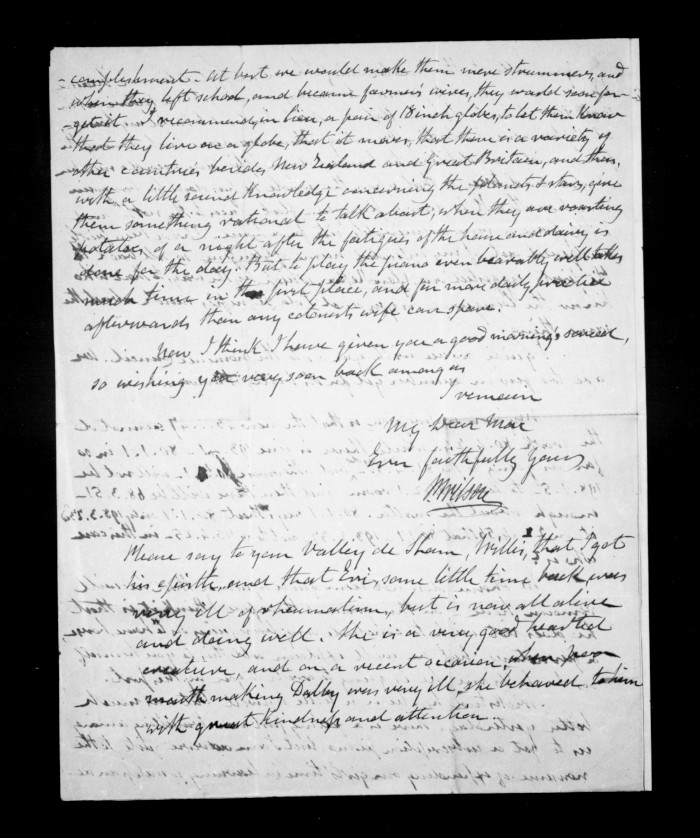 -complishment. At best we would make them mere strummers, and
when they left school, and became farmers wives, they would soon for-
-get it. I recommend, in lieu, a pair of 18 inch globes, to let them know
that they live on a globe, that it moves, that there is a variety of
other countries besides New Zealand and Great Britain, and thus,
with a little sound knowledge concerning the planets & stars, give
them something rational to talk about, when they are roasting
potatoes of a night after the fatigues of the house and dairy, is
done for the day. But to play the piano even bearably, will take
much time in the first place, and far more daily practice
afterwards than any colonists wife can spare.
Now, I think I have given you a good mornings
so wishing you very soon back among us
I remain
My Dear Mac
Ever faithfully Yours
Please say to your Valley de Sham, Willis, that I got
his epistle, and that Evi, some little time back, was
very ill of rheumatism, but is now all alive
and doing well. She is a very good hearted
creature, and on a recent occasion, when
making Dalby was very ill, she behaved to him
with great kindness and attention.